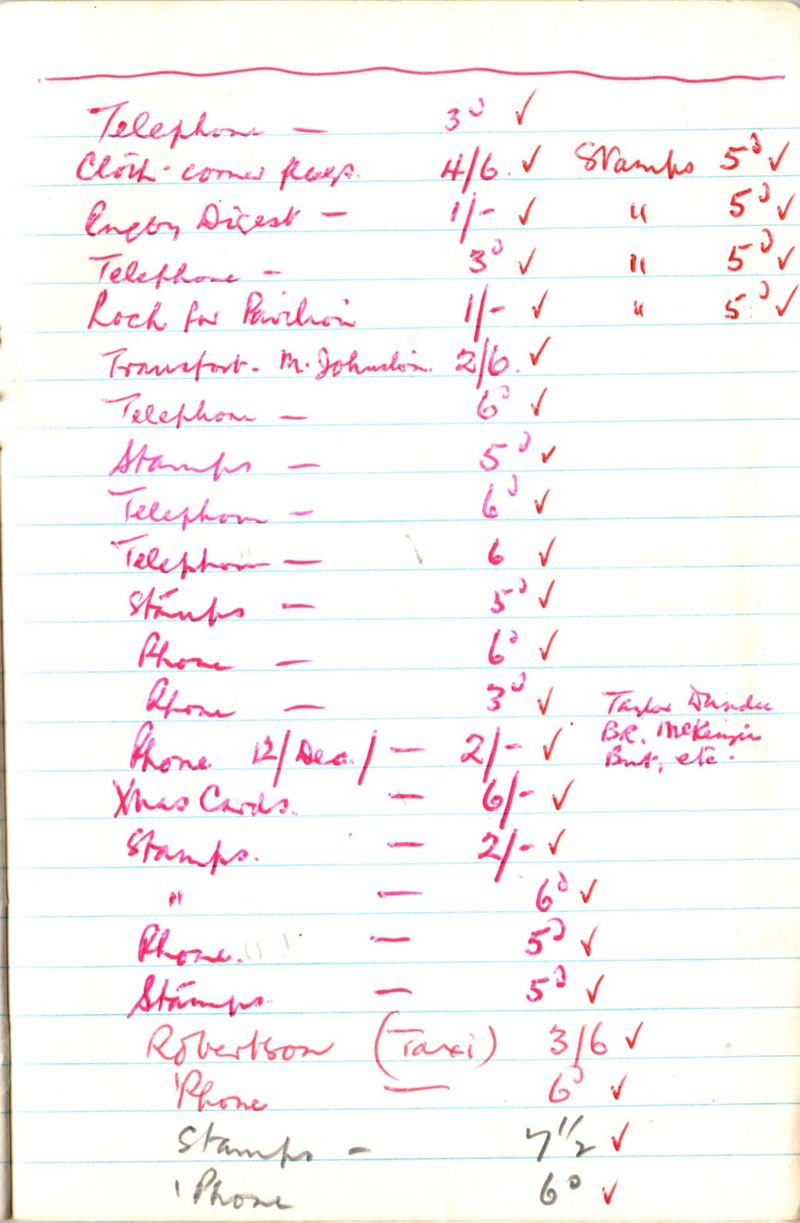 Telephone — 3d ✓
Cloth - corner flags. 4/6. ✓ Stamps 5d ✓
Rugby Digest — 1/- ✓ " 5d ✓
Telephone — 3d ✓ " 5d ✓
Lock for Pavilion 1/- ✓ " 5d ✓
Transport - M. Johnston. 2/6. ✓
Telephone — 6d ✓
Stamps — 5d ✓
Telephone — 6d ✓
Telephone — 6 ✓
Stamps — 5d ✓
Phone — 6d ✓
Phone — 3d ✓ Taylor Dundee
Phone 12/Dec./ — 2/- ✓ B.R. McKenzie
etc.
Xmas Cards. — 6/- ✓
Stamps. — 2/- ✓
" — 6d ✓
Phone. — 5d ✓
Stamps — 5d ✓
Robertson (Taxi) 3/6 ✓
'Phone — 6d ✓
Stamps — 7 1/2 ✓
'Phone 6d ✓